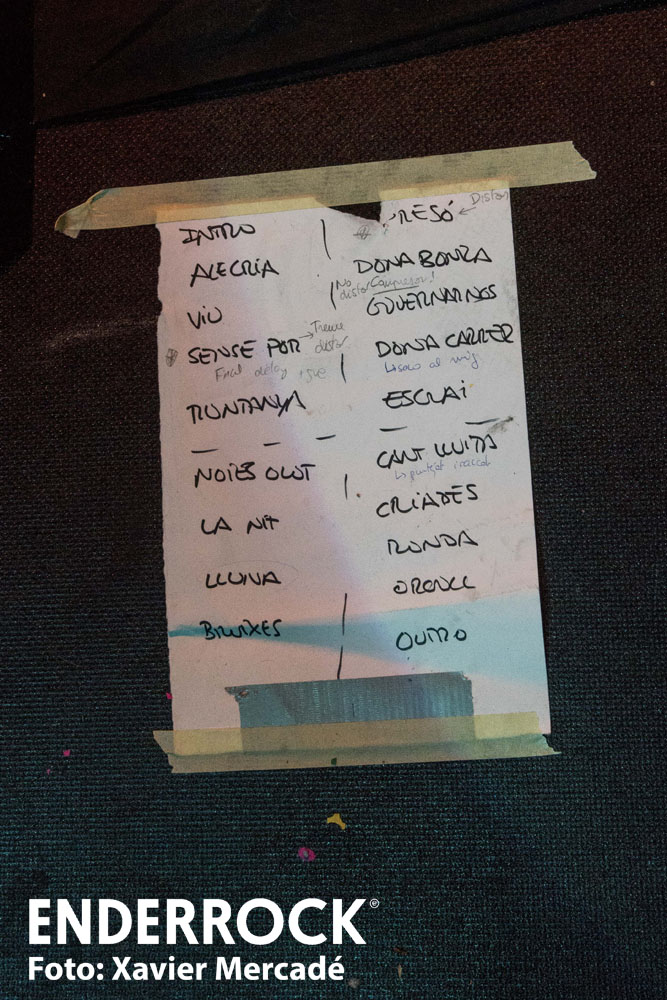 INTRO
ALEGRIA
VIU
SENSE POR → Treure distor
Final delay
MUNTANYA
NOIES OLOT
LA NIT
LLUNA
BRUIXES
RESÓ ← Distor
DONA BONZA
No distor Compressor!
GOVERNARNOS
DONA CARRER
ESCLAI
CANT LLUITA
CRIADES
RONDA
ORGULL
OUTRO
ENDERROCK®
Foto: Xavier Mercadé